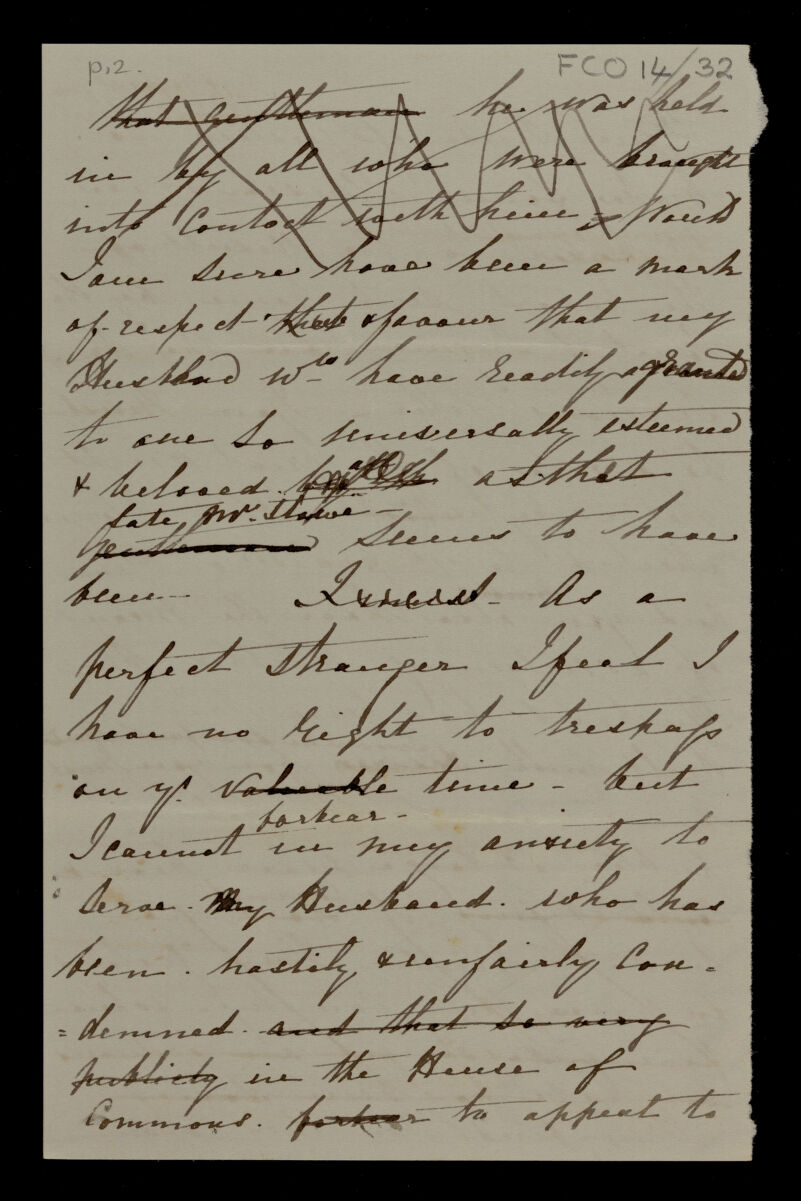 p.2.
FCO 14/32
that gentleman he was held
in by all who were brought
into contact with him would
I am sure have been a mark
of respect that & favour that my
Husband wd. have readily granted
to one so universally esteemed
& beloved. as that
late Mr. Stowe -
gentleman seems to have
been - As a
perfect stranger I feel I
have no right to trespass
on yr. valuable time - but
forbear -
I cannot in my anxiety to
serve my Husband. who has
been. hastily & unfairly Con =
= demned. and that so very
publicly in the House of
Commons. forbear to appeal to